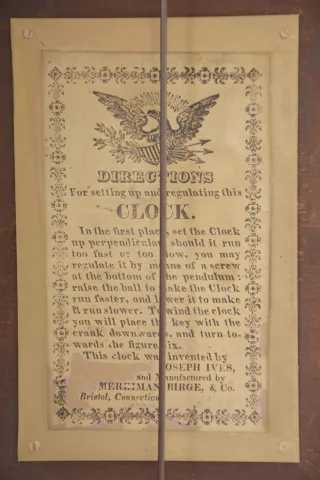 DIRECTIONS
For setting up and regulating this
CLOCK.
In the first place, set the Clock
up perpendicular should it run
too fast or too slow, you may
regulate it by means of a screw
at the bottom of the pendulum:
raise the ball to make the Clock
run faster, and lower it to make
it run slower. To wind the clock
you will place the key with the
crank downwards, and turn to-
wards the figure six.
This clock was invented by
JOSEPH IVES,
and Manufactured by
MERRIMAN BIRGE, & Co.
Bristol, Connecticut